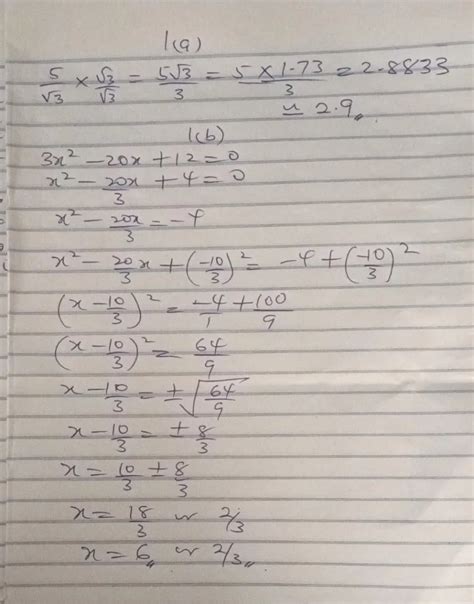 1(a)
5/√3 × √3/√3 = 5√3/3 = 5 × 1.73/3 = 2.8833
≃ 2.9
1(b)
3x² − 20x + 12 = 0
x² − 20x/3 + 4 = 0
x² − 20x/3 = −4
x² − 20/3 x + (−10/3)² = −4 + (−10/3)²
(x − 10/3)² = −4/1 + 100/9
(x − 10/3)² = 64/9
x − 10/3 = ±√(64/9)
x − 10/3 = ± 8/3
x = 10/3 ± 8/3
x = 18/3 or 2/3
x = 6 or 2/3